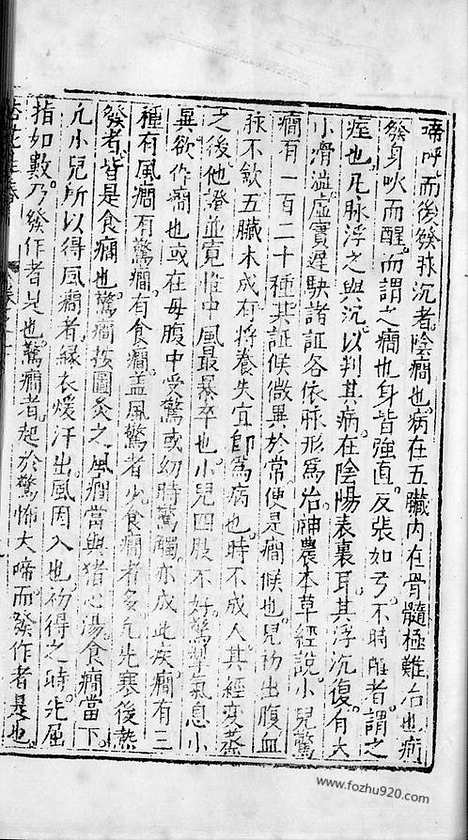 啼呼而後發㧞沉者陰癎也病在五臟內在骨髓極難治也病
發身吹而醒而謂之癎也身皆強直反張如弓不時醒者謂之
痓也凡脉浮之與沉以判其病在陰陽表裏耳其浮沉復有大
小滑澁虛實遲駃諸証各依脉形爲治神農本草經説小兒驚
癎有一百二十種其証候微異於常便是癎候也兒初出腹血
脉不歛五臟未成有將養失宜卽爲病也時不成人其經变蒸
之後他證並寛惟中風最暴卒也小兒四股不好驚掣氣息小
異欲作癎也或在母腹中受驚或幼時驚觸亦成此疾癎有三
種有風癎有驚癎有食癎盖風驚者少食癎者多凢先寒後熱
發者皆是食癎也驚癎按圖灸之風癎當與猪心湯食癎當下
凢小兒所以得風癎者緣衣煖汗出風因入也初得之時先屈
指如數乃發作者是也驚癎者起於驚怖大啼而發作者是也
www.fozhu920.com